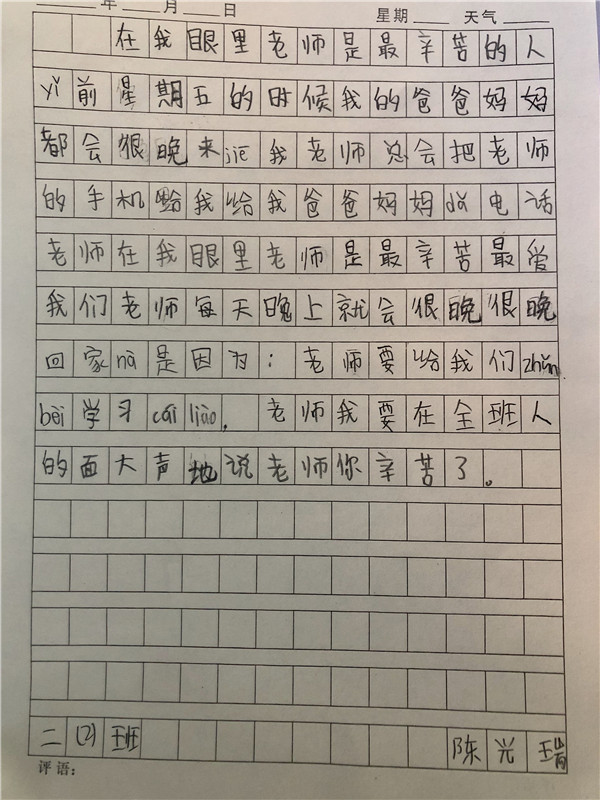 年 月 日 星期 天气
在我眼里老师是最辛苦的人
yǐ前星期五的时候我的爸爸妈妈
都会很晚来jiē我老师总会把老师
的手机给我给我爸爸妈妈dǎ电话
老师在我眼里老师是最辛苦最爱
我们老师每天晚上就会很晚很晚
回家nà是因为：老师要给我们zhǔn
bèi学习cái liào，老师我要在全班人
的面大声地说老师你辛苦了。
二(2)班 陈光瑞
评语：